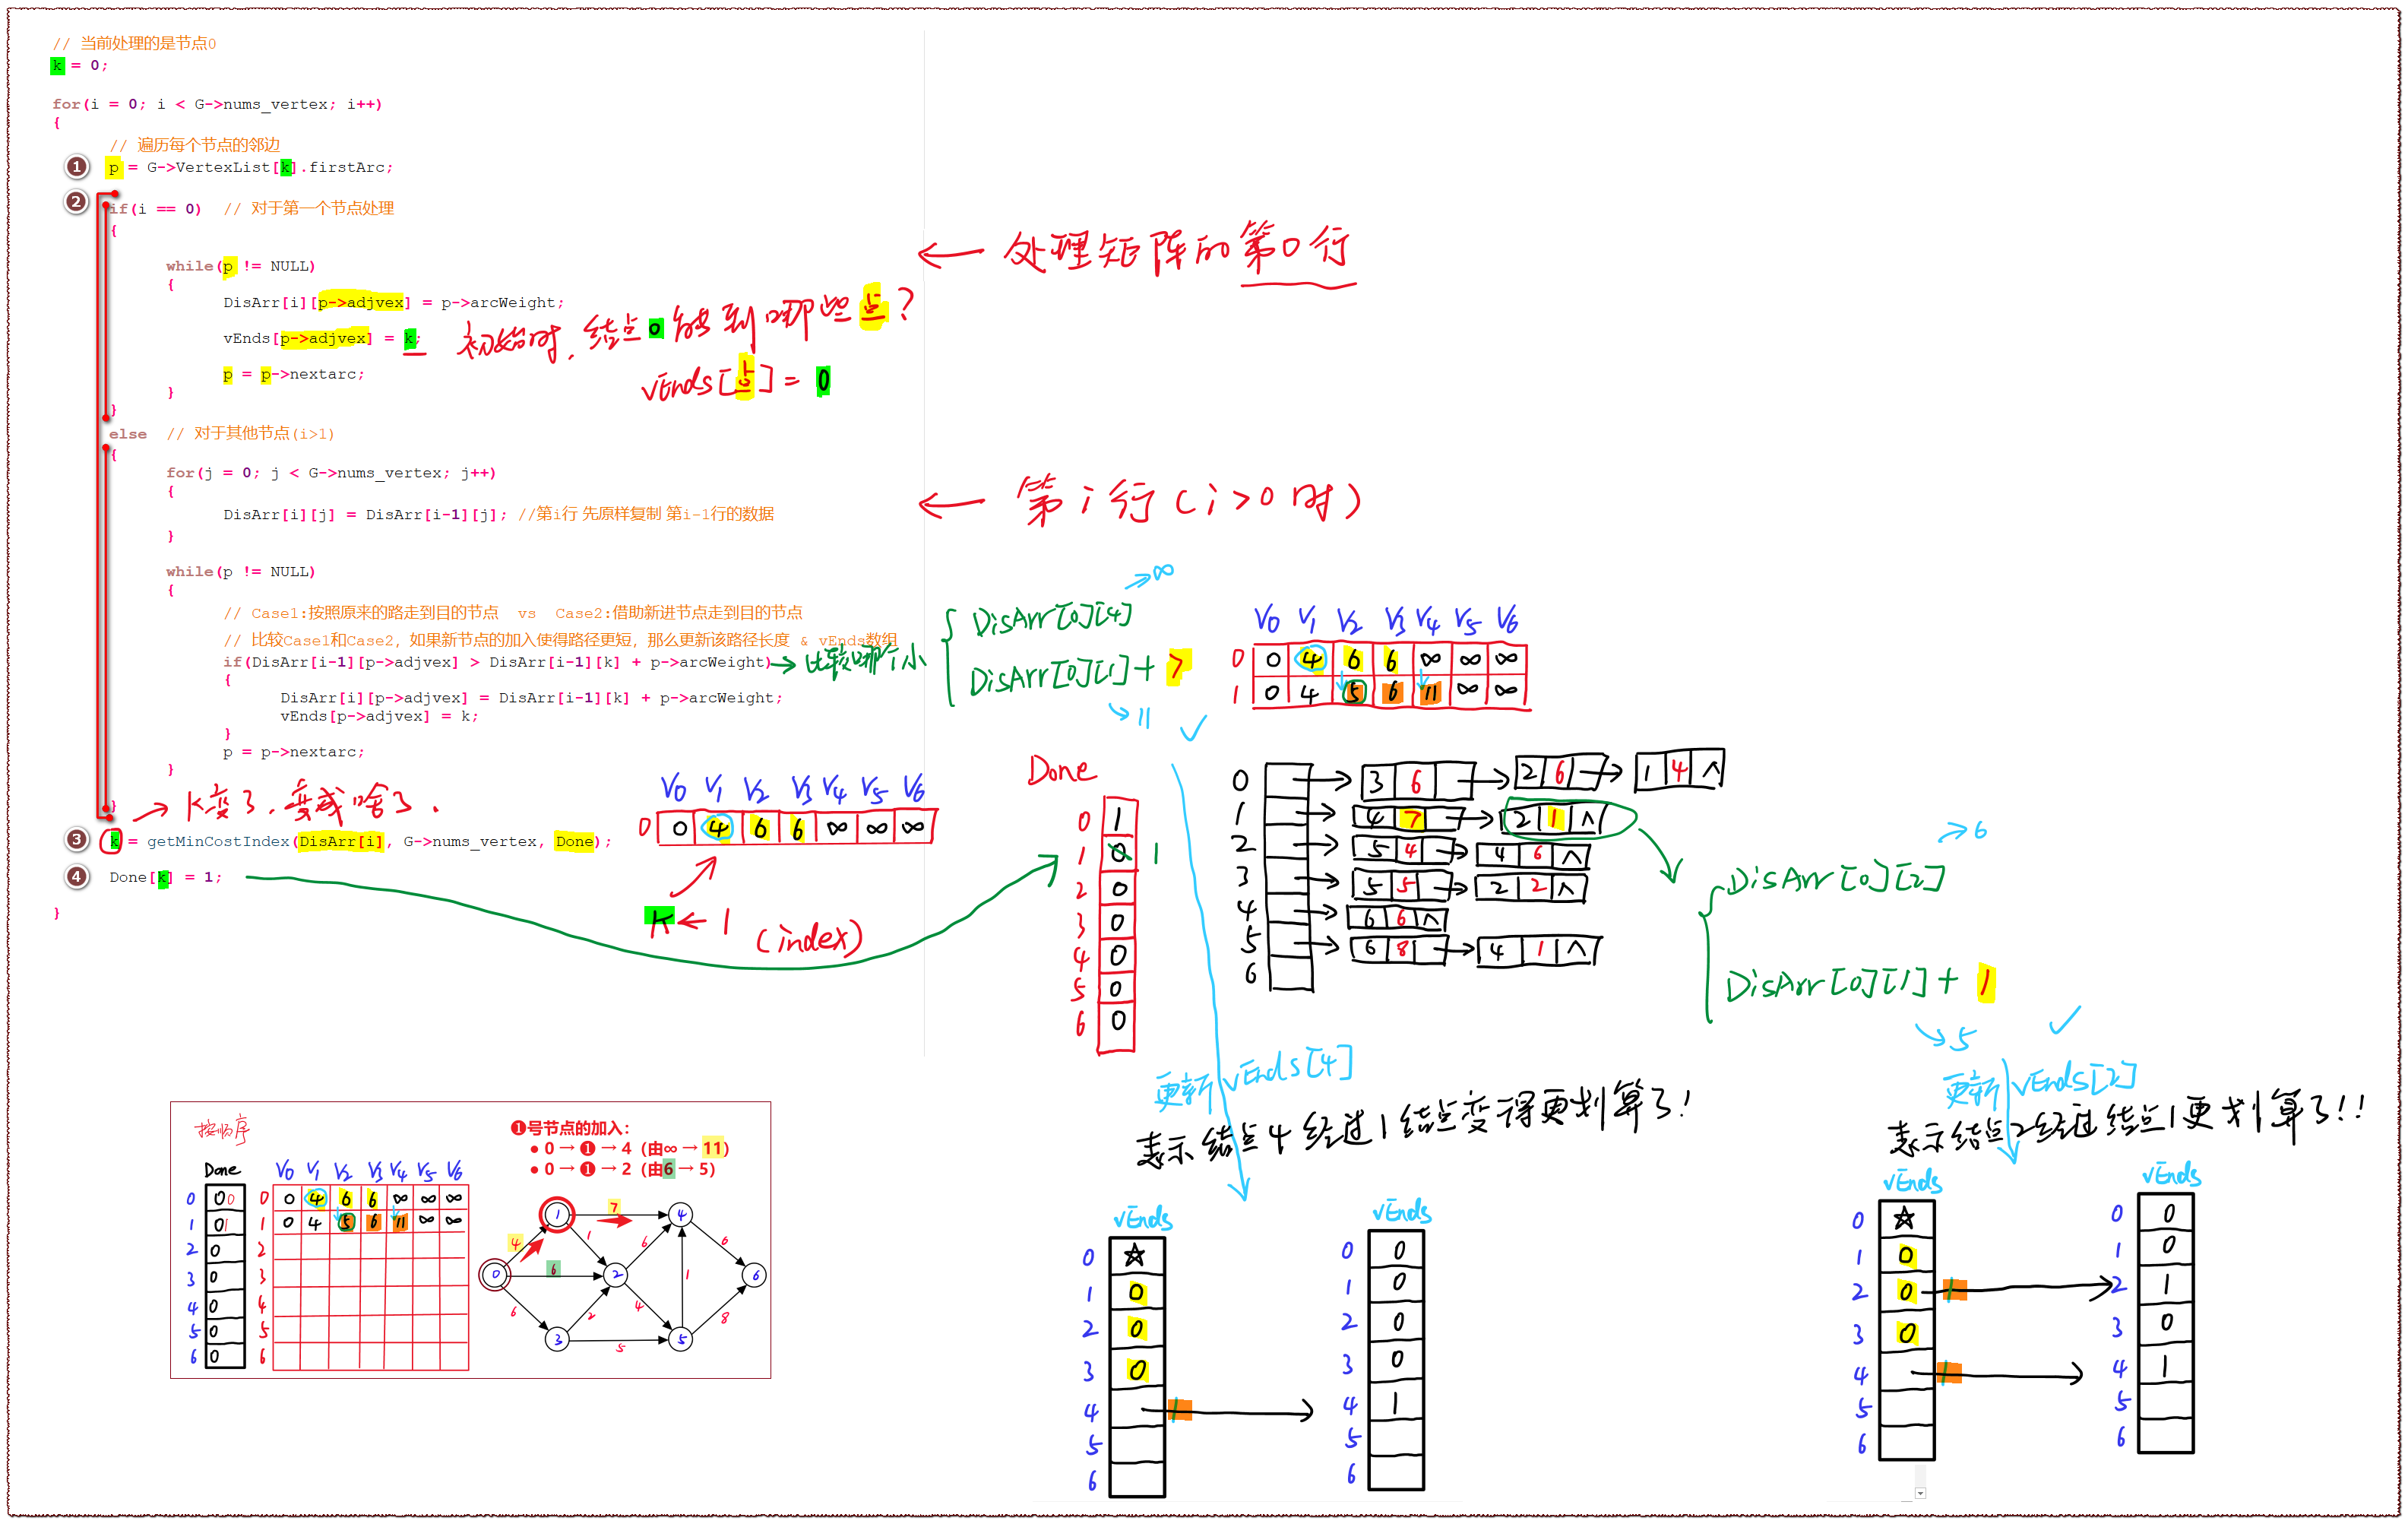 // 当前处理的是节点0
k = 0;
for(i = 0; i < G->nums_vertex; i++)
{
// 遍历每个节点的邻边
1 p = G->VertexList[k].firstArc;
2 if(i == 0) // 对于第一个节点处理
{
while(p != NULL)
{
DisArr[i][p->adjvex] = p->arcWeight;
vEnds[p->adjvex] = k;
p = p->nextarc;
}
}
else // 对于其他节点(i>1)
{
for(j = 0; j < G->nums_vertex; j++)
{
DisArr[i][j] = DisArr[i-1][j]; //第i行 先原样复制 第i-1行的数据
}
while(p != NULL)
{
// Case1:按照原来的路走到目的节点 vs Case2:借助新进节点走到目的节点
// 比较Case1和Case2, 如果新节点的加入使得路径更短, 那么更新该路径长度 & vEnds数组
if(DisArr[i-1][p->adjvex] > DisArr[i-1][k] + p->arcWeight)
{
DisArr[i][p->adjvex] = DisArr[i-1][k] + p->arcWeight;
vEnds[p->adjvex] = k;
}
p = p->nextarc;
}
}
3 k = getMinCostIndex(DisArr[i], G->nums_vertex, Done);
4 Done[k] = 1;
}
处理矩阵的第0行
初始时, 结点0能到哪些点?
vEnds[点] = 0
第i行(i>0时)
比较哪个小
DisArr[0][4]
∞
DisArr[0][1] + 7
11
V0 V1 V2 V3 V4 V5 V6
0 0 4 6 6 ∞ ∞ ∞
1 0 4 5 6 11 ∞ ∞
K变了, 变成啥了.
V0 V1 V2 V3 V4 V5 V6
0 0 4 6 6 ∞ ∞ ∞
K ← 1
(index)
Done
0 1
1 0 1
2 0
3 0
4 0
5 0
6 0
0 3 6 2 6 1 4 ∧
1 4 7 2 1 ∧
2 5 4 4 6 ∧
3 5 5 2 2 ∧
4 6 6 ∧
5 6 8 4 1 ∧
6
6
DisArr[0][2]
DisArr[0][1] + 1
5
更新 vEnds[4]
表示结点4经过1结点变得更划算了!
更新 vEnds[2]
表示结点2经过结点1更划算了!!
vEnds
0 ☆
1 0
2 0
3 0
4 1
5
6
vEnds
0 0
1 0
2 0
3 0
4 1
5
6
vEnds
0 ☆
1 0
2 0 1
3 0
4 1
5
6
0 0
1 0
2 1
3 0
4 1
5
6
按顺序
Done
0 0 0
1 0 1
2 0
3 0
4 0
5 0
6 0
V0 V1 V2 V3 V4 V5 V6
0 0 4 6 6 ∞ ∞ ∞
1 0 4 5 6 11 ∞ ∞
2
3
4
5
6
❶号节点的加入:
• 0 → ❶ → 4 (由∞ → 11)
• 0 → ❶ → 2 (由6 → 5)
1 7 4
4 1 6 6
0 6 2 1 6
6 2 4 8
3 5 5